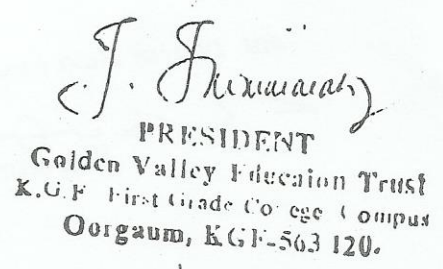 PRESIDENT
Golden Valley Educaion Trust
K.G.F. First Grade Co ege Campus
Oorgaum, KGF-563 120.